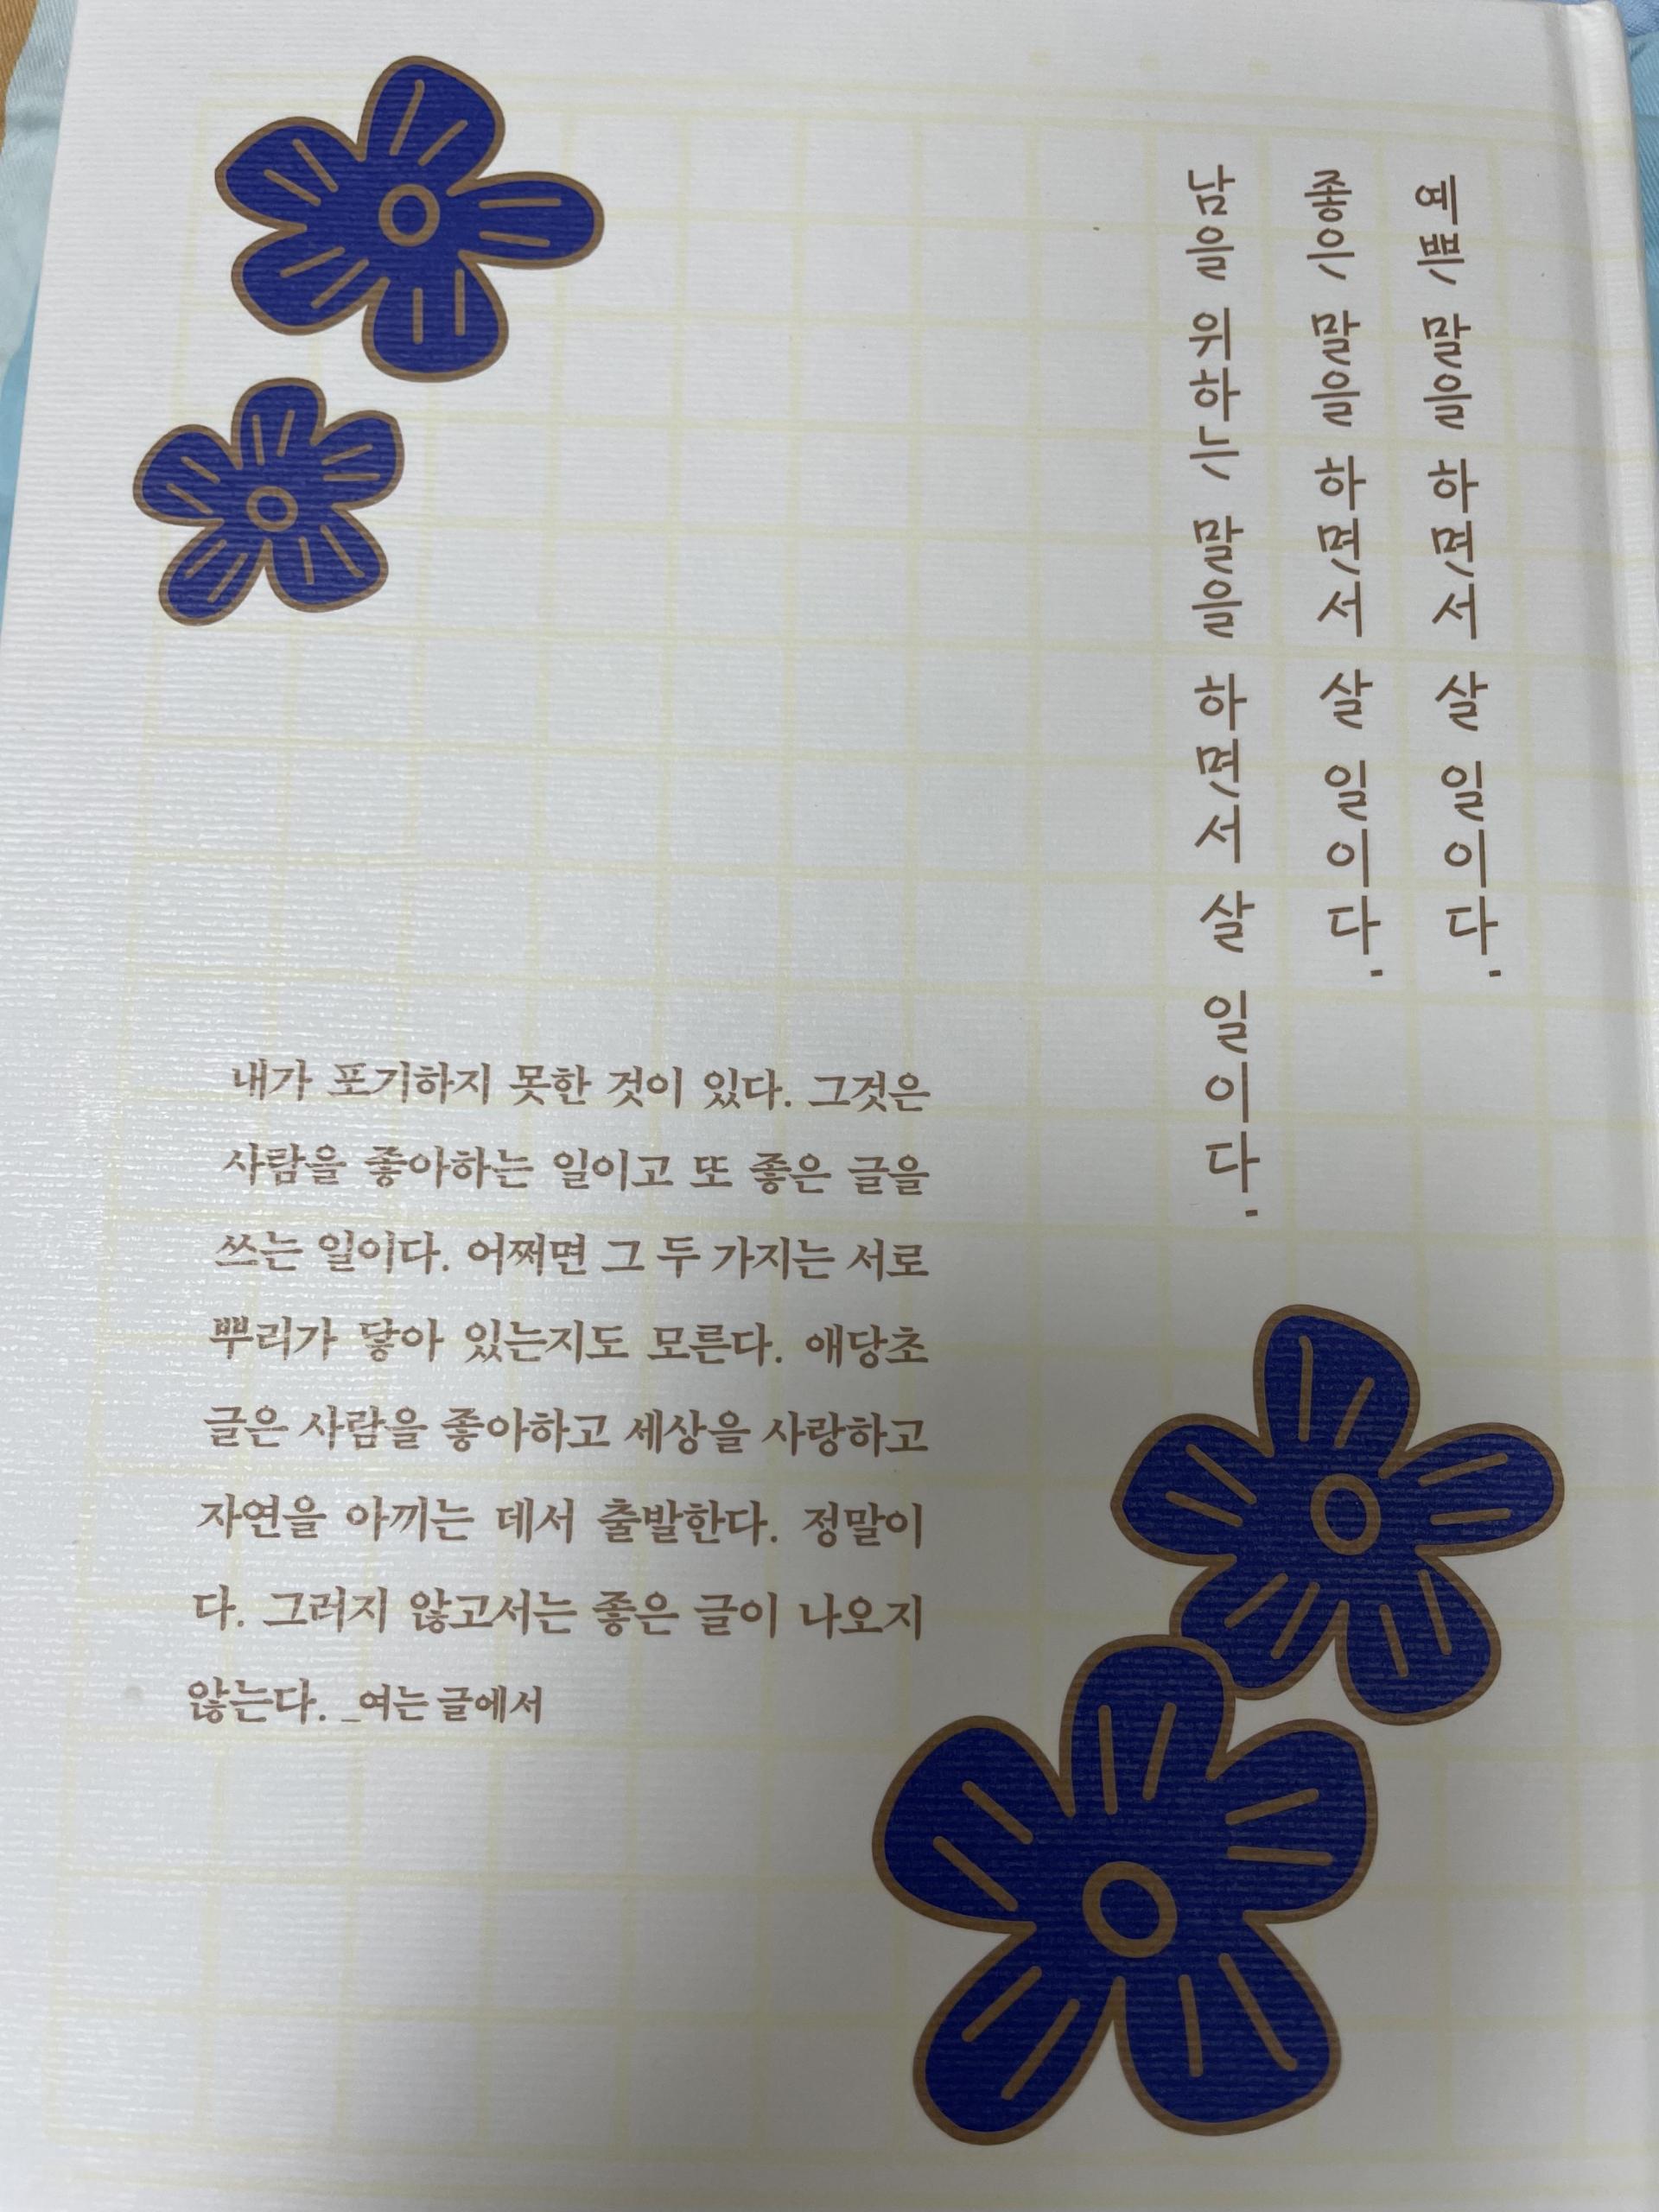 예쁜 말을 하면서 살 일이다.
좋은 말을 하면서 살 일이다.
남을 위하는 말을 하면서 살 일이다.
내가 포기하지 못한 것이 있다. 그것은
사람을 좋아하는 일이고 또 좋은 글을
쓰는 일이다. 어쩌면 그 두 가지는 서로
뿌리가 닿아 있는지도 모른다. 애당초
글은 사람을 좋아하고 세상을 사랑하고
자연을 아끼는 데서 출발한다. 정말이
다. 그러지 않고서는 좋은 글이 나오지
않는다. _여는 글에서